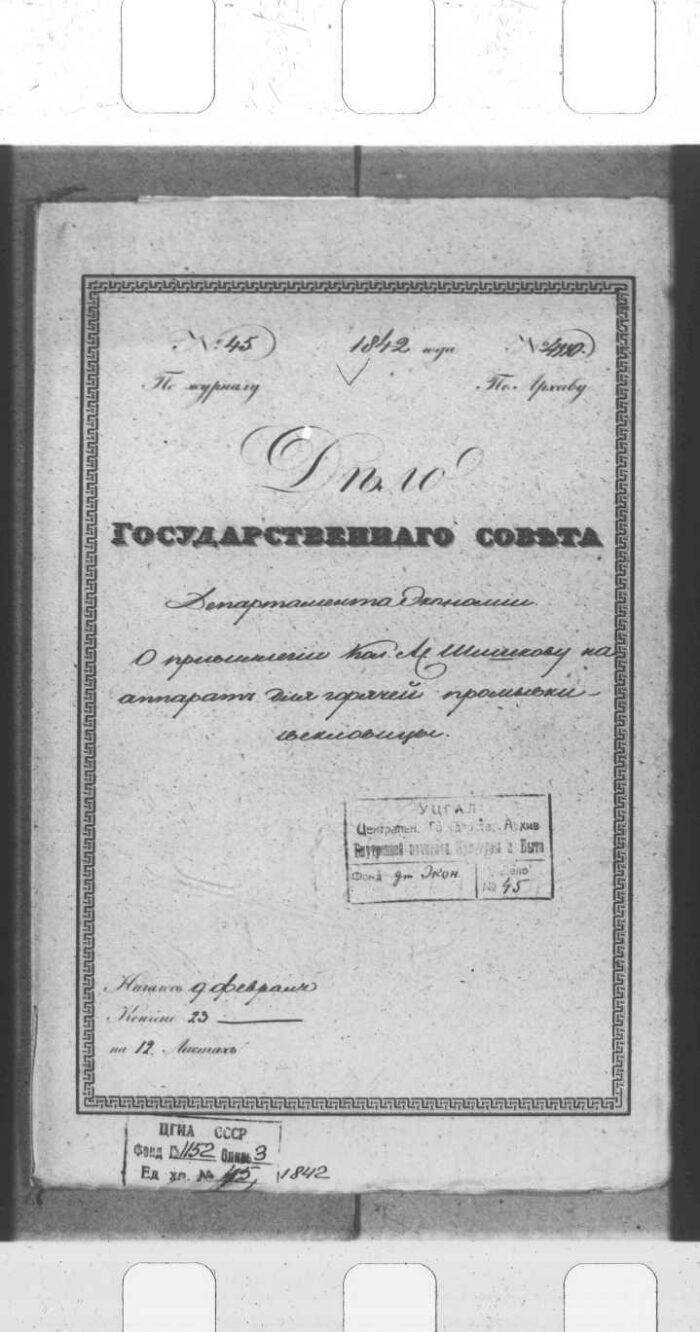 № 45 1842 года №
По журналу По Архиву
Дѣло
ГОСУДАРСТВЕННАГО СОВѢТА
Департамента Экономіи
О привилегіи Кол. Ас. Шишкову на
аппаратъ для горячей промывки
свекловицы.
УЦГАЛ
Центральн. Архив
Внутренней политики, Культуры и Быта
Фонд дп Экон Дело
№ 45
Началось 9 февраля
Кончено 23
на 12 Листахъ
ЦГИА СССР
Фонд 1152 Опись 3
Ед хр. № 45, 1842